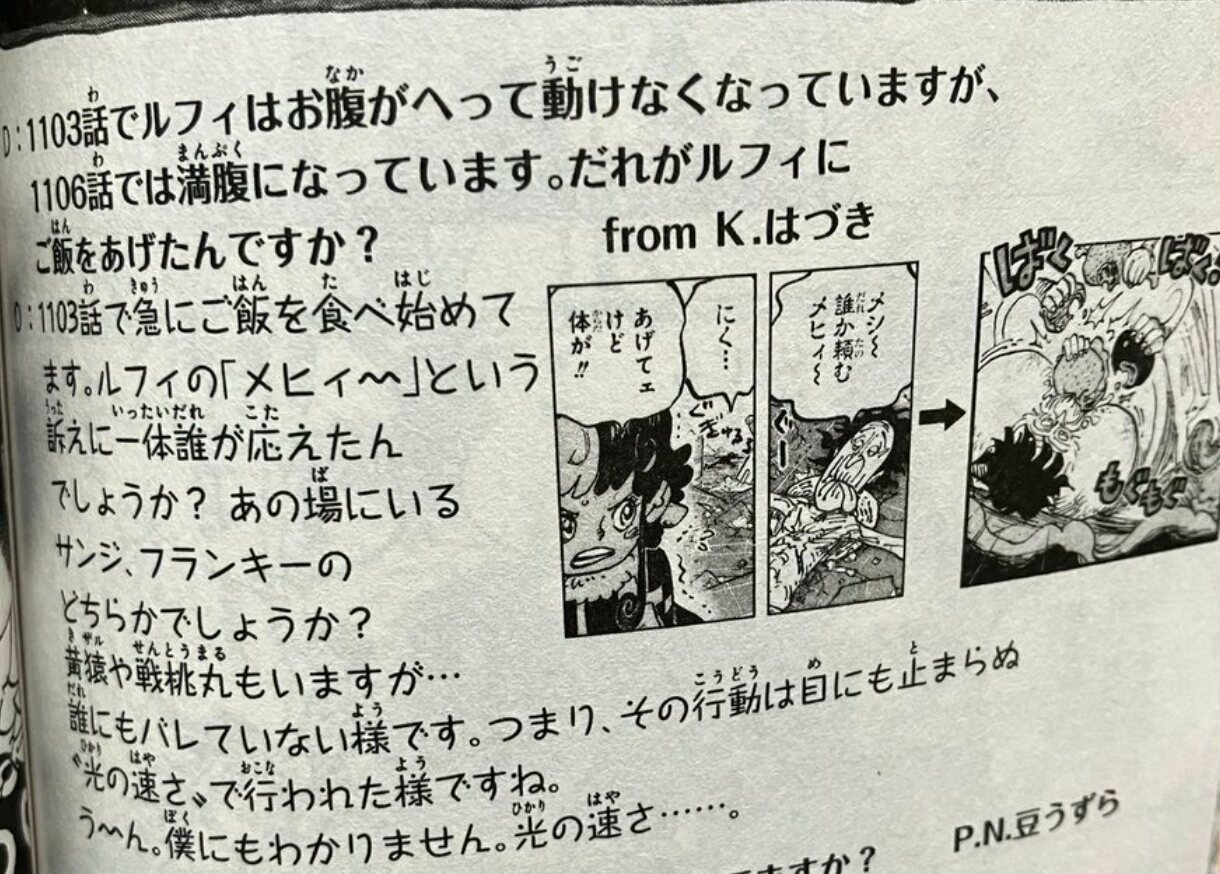 D:1103話でルフィはお腹がへって動けなくなっていますが、
1106話では満腹になっています。だれがルフィに
ご飯をあげたんですか？
from K.はづき
O:1103話で急にご飯を食べ始めて
ます。ルフィの「メヒィ〜〜」という
訴えに一体誰が応えたん
でしょうか？ あの場にいる
サンジ、フランキーの
どちらかでしょうか？
黄猿や戦桃丸もいますが…
誰にもバレていない様です。つまり、その行動は目にも止まらぬ
〝光の速さ〟で行われた様ですね。
う〜〜ん。僕にもわかりません。光の速さ……。
メシ〜
誰か頼む
メヒィ〜
ぐー
にく…
ぐぎゅるる
あげてェ
けど
体が!!
ばくばく
ばく
もぐもぐ
P.N.豆うずら
ますか？